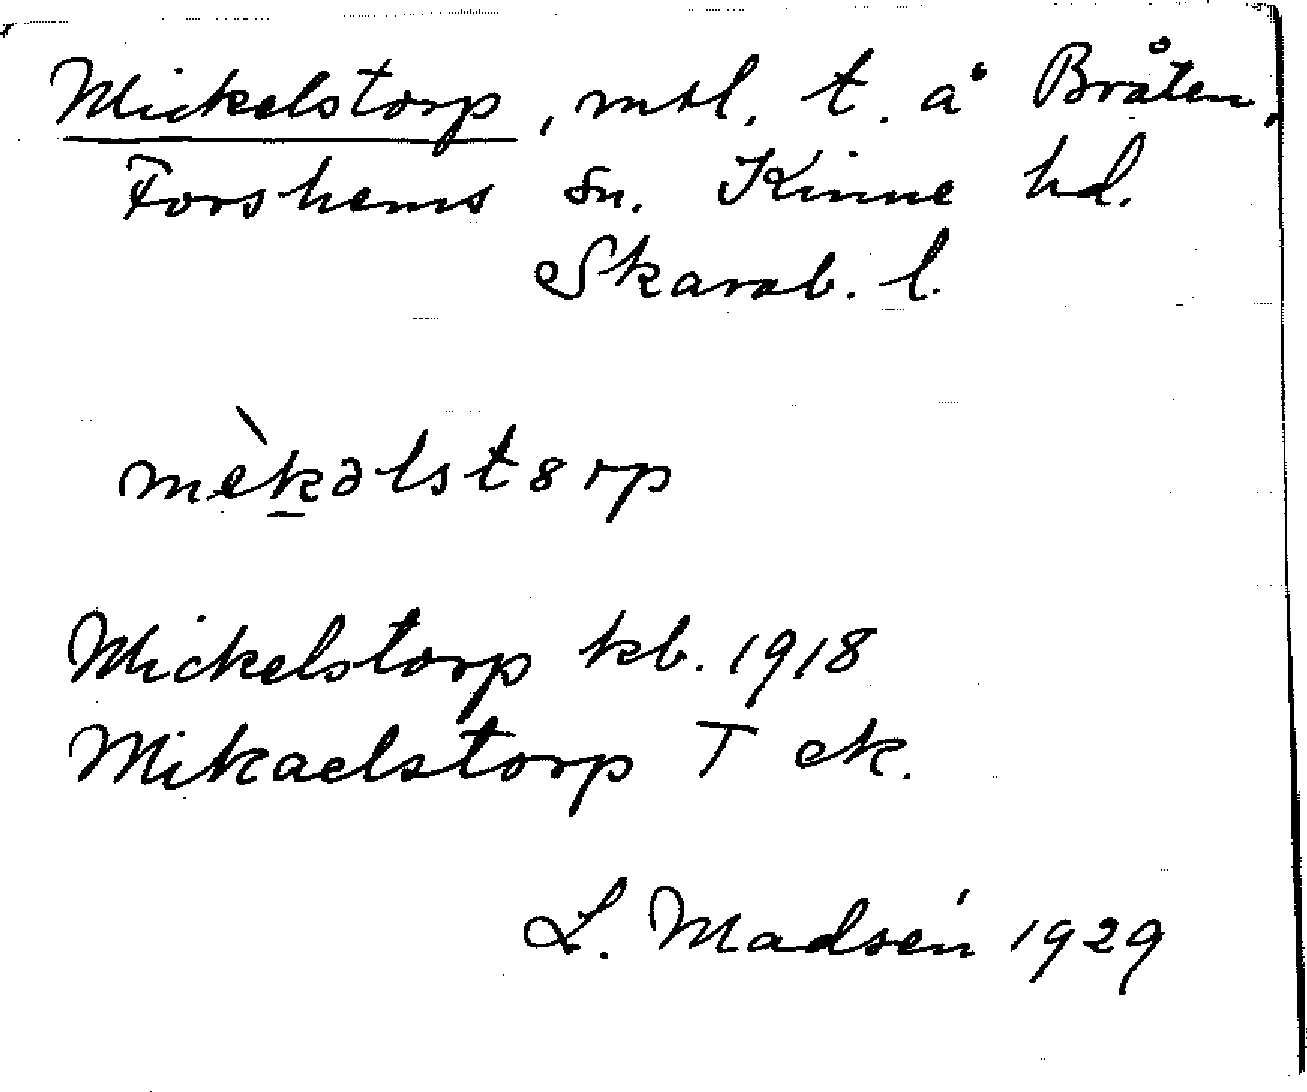 Mickelstorp, mtl. t. å Bråten,
Forshems sn. Kinne hd.
Skarab. l.
mèkəlstȣrp
Mickelstorp kb. 1918
Mikaelstorp T ek.
L. Madsén 1929